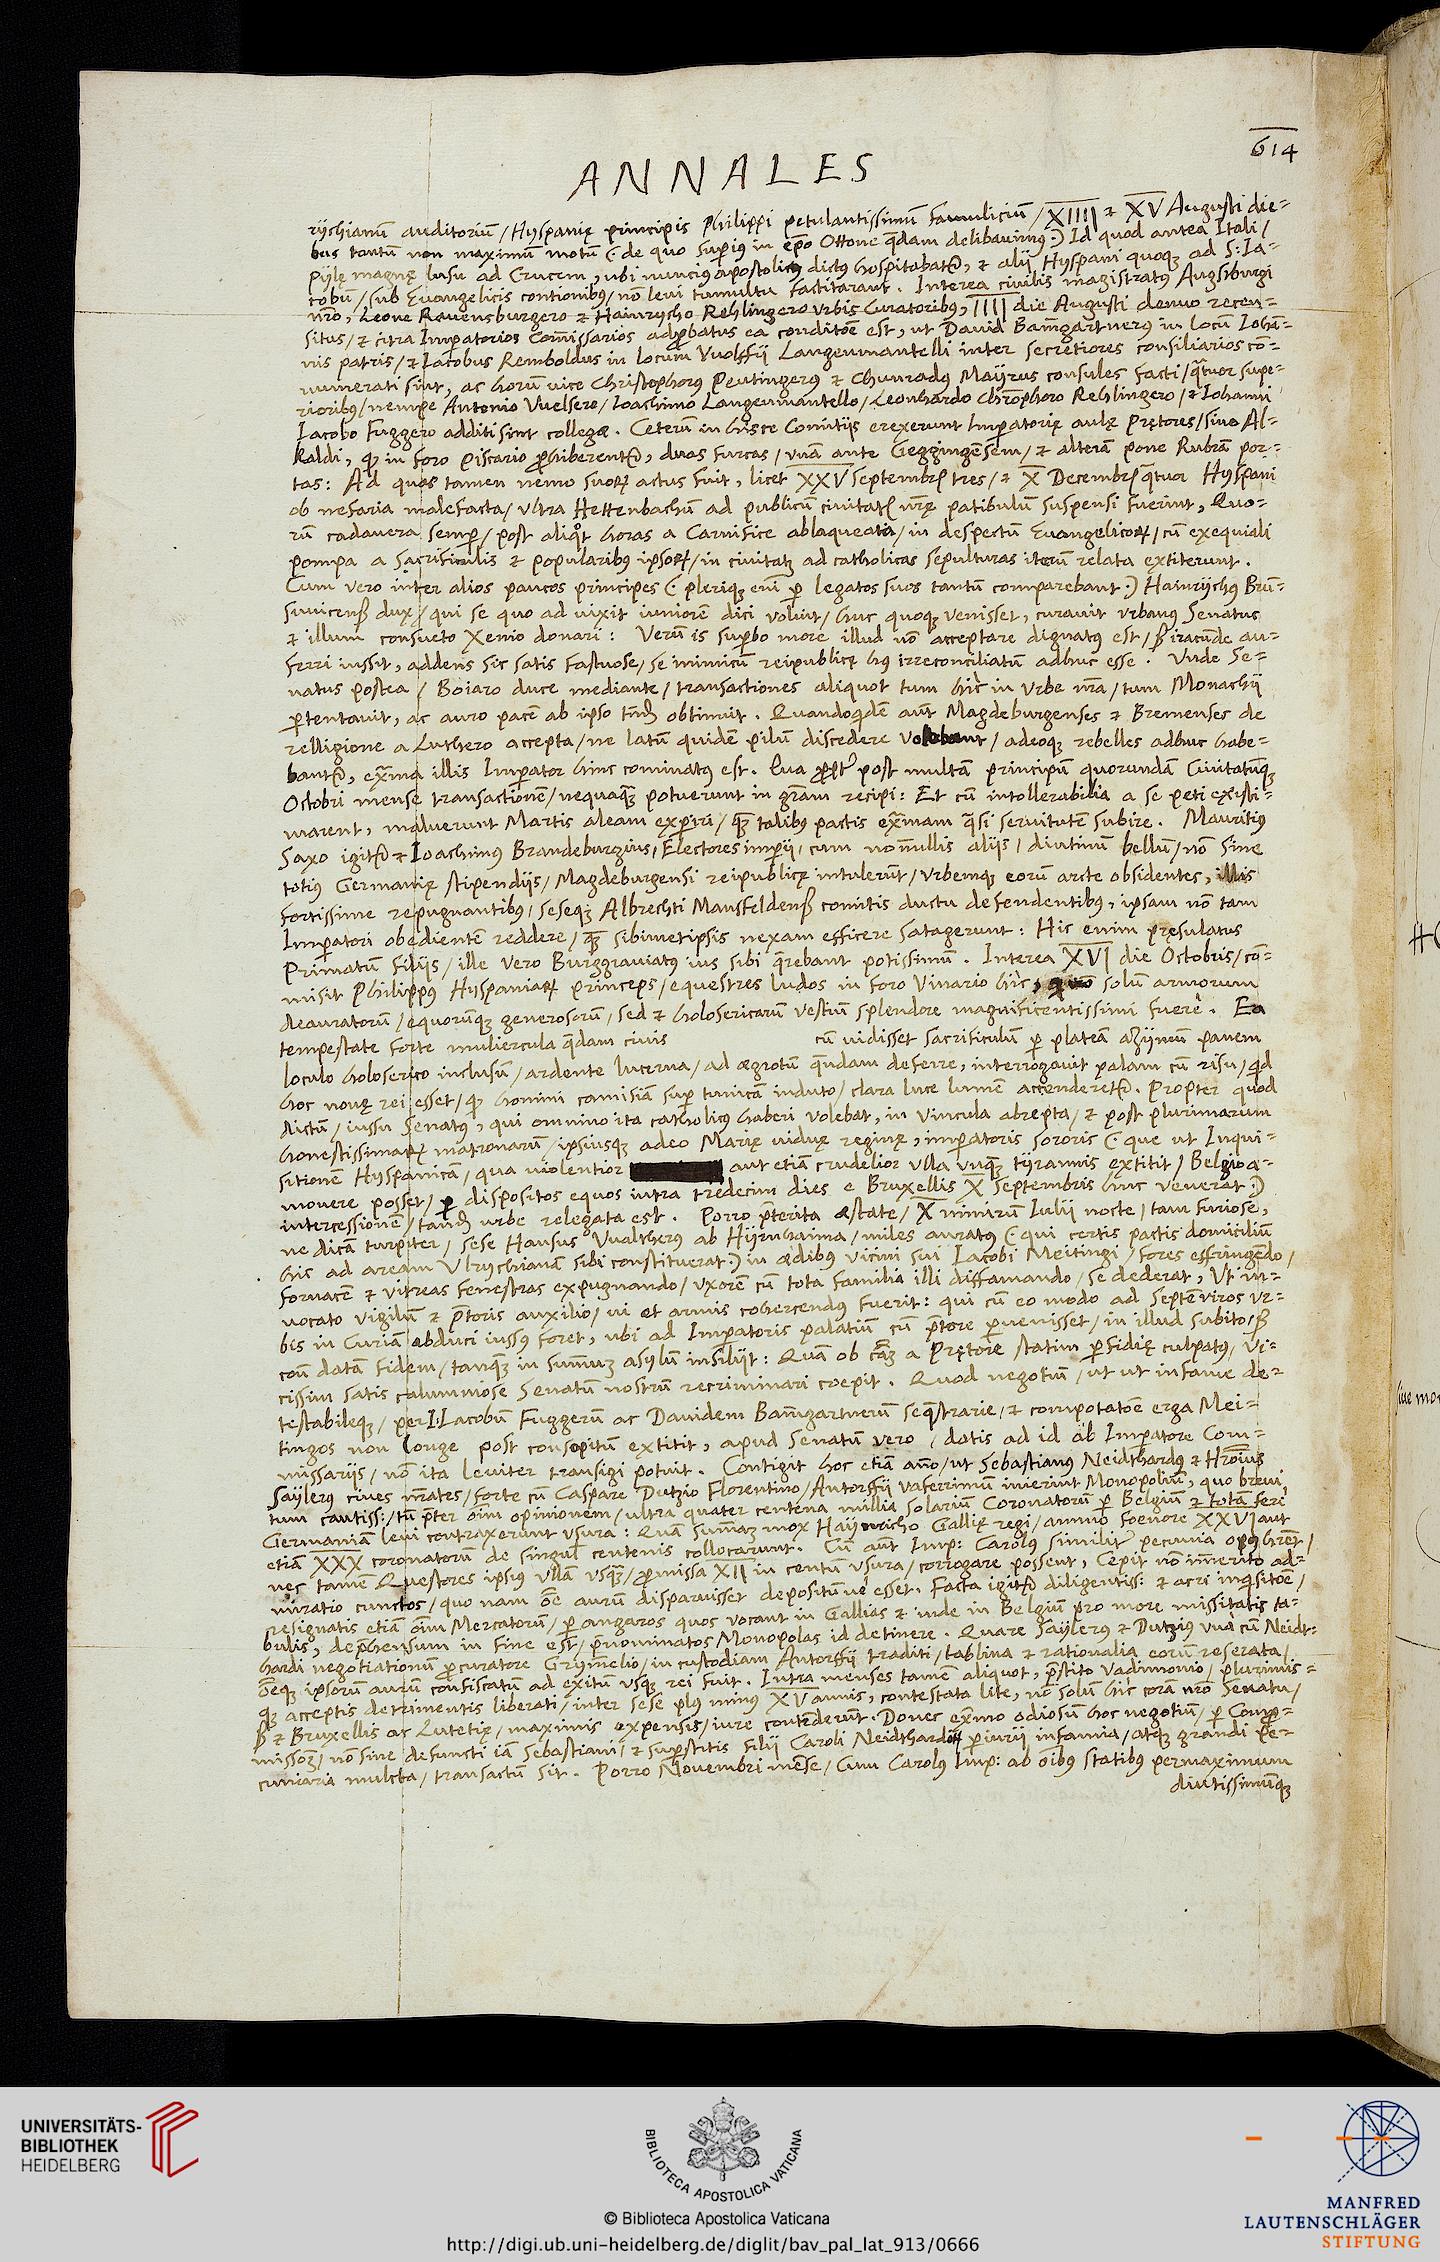 614
ANNALES
rÿchianū auditoriū / Hyspanię principis Philippi petulantissimū famuliciū / XIIII et XV Augusti die-
bus tantū non maximū motū (: de quo superius in ep̄o Ottone q̄dam delibavimꝰ :) Id quod antea Itali /
Pÿlę magnę lusu ad Crucem, ubi nuncius apostolicus dictꝰ hospitabatr̄, et alij Hyspani quoqꝫ ad S: Ia-
cobū / sub Evangelicis contionibꝰ / nō levi tumultu factitarant. Interea civilis magistratꝰ Augsburgi
nr̄o, Leone Ravensburgero et Hainrycho Rehlingero urbis Curatoribꝰ, IIII die Augusti denuo recen-
situs / et citra Imperatorios Com̄issarios adprobatus ea conditōe est, ut David Bam̄gartnerꝰ in locū Iohā-
nis patris / et Iacobus Remboldus in locum Vuolffii Langenmantelli inter secretiores consiliarios cō-
numerati sint, ac horū vice Christophorꝰ Peutingerꝰ et Chunradꝰ Maÿrus consules facti / q̄tuor supe-
rioribꝰ / nempe Antonio Vuelsero / Ioachimo Langenmantello / Leonhardo Chrōphoro Rehlingero / et Iohanni
Iacobo Fuggero additi sint collegæ. Ceterū in hisce Comitijs erexerunt Imperatorię aulę Prętores / sive Al-
kaldi, qꝫ in foro Piscario prohiberentr̄, duas furcas / unā ante Geggingēsem / et alterā pone Rubrā por-
tas: Ad quas tamen nemo suorꝝ actus fuit, licet XXV Septembrꝭ tres / et X Decembrꝭ q̄tuor Hyspani
ob nefaria malefacta / ultra Hettenbachū ad publicū civitatꝭ nr̄ę patibulū suspensi fuerint, Quo-
rū cadavera semper / post aliq̊t horas a Carnifice ablaqueata / in despectū Evangelicorꝝ / cū exequiali
pompa a sacrificulis et popularibus ipsorꝝ / in civitatꝫ ad catholicas sepulturas iterū relata extiterunt.
Cum vero inter alios paucos principes (: pleriqꝫ eni per legatos suos tantū comparebant :) Hainrÿchꝰ Brū-
suicensꝭ dux / qui se quo ad vixit iuniorē dici voluit / huc quoqꝫ venisset, curavit urbanꝰ Senatus
et illum consueto Xenio donari: Verū is superbo more illud nō acceptare dignatꝰ est / sꝫ iracūde au-
ferri iussit, addens sic satis fastuose / se inimicū reipublicę hꝰ irreconciliatū adhuc esse. Unde Se-
natus postea / Boiaro duce mediante / transactiones aliquot tum hic in Urbe nr̄a / tum Monachij
pertentavit, ac auro pacē ab ipso tādꝫ obtinuit. Quandoqdē aūt Magdeburgenses et Bremenses de
relligione a Luthero accepta / ne latū quidē pilū discedere volebant / adeoqꝫ rebelles adhuc habe-
bantr̄, exr̄ma illis Imperator hinc cominatꝰ est. Qua propt' post multā principū quorundā Civitatūqꝫ
Octobri mense transactionē / nequaqꝫ potuerunt in grām recipi: Et cū intollerabilia a se peti existi-
marent, maluerunt Martis aleam experiri / qꝫ talibus pactis exr̄mam q̄si servitutē subire. Mauritiꝰ
Saxo igitr̄ et Ioachimus Brandeburgius / Electores imperij, cum nonnullis alijs / diutinū bellū / nō sine
totiꝰ Germanię stipendijs / Magdeburgensi reipublicę intulerūt / Urbemqꝫ eorū arcte obsidentes, illis
fortissime repugnantibꝰ / seseqꝫ Albrechti Mansfeldensꝭ comitis ductu defendentibꝰ, ipsam nō tam
Imperatori obedientē reddere / qꝫ sibimetipsis nexam efficere satagerunt: Hic enim pręsulatus
Primatū filijs / ille vero Burggraviatꝰ ius sibi q̄rebant potissimū. Interea XVI die Octobris / cō-
misit Philippꝰ Hyspaniarꝝ princeps / equestres ludos in foro Vinario hic, qui nō solū armorum
deauratorū / equorūqꝫ generosorū, sed et holosericarū vestiū splendore magnificentissimi fuere. Ea
tempestate forte muliercula q̄dam civis cū vidisset sacrificulū per plateā azÿmū panem
loculo holoserico inclusū / ardente lucerna / ad ægrotū q̄ndam deferre, interrogavit palam cū risu / qd
hoc novę rei esset / qꝫ homini camisiā super tunicā induto / clara luce lumē accenderetr̄. Propter quod
dictū / iussu Senatꝰ, qui omnino ita catholicꝰ haberi volebat, in vincula abrepta / et post plurimarum
honestissimarꝝ matronarū / ipsiusqꝫ adeo Marię viduę reginę, imperatoris sororis (: que ut Inqui-
sitionē Hyspanicā, qua violentior aut etiā crudelior ulla unqꝫ tÿrannis extitit / Belgio a-
movere posset / per dispositos equos intra tredecim dies e Bruxellis X Septembris huc venerat :)
intercessionē / tandꝫ urbe relegata est. Porro pręterita æstate / X nimirū Iulij nocte / tam furiose,
ne dicā turpiter / sese Hansus Vualtherꝰ ab Hÿrnhaima / miles auratꝰ (: qui certis pactis domiciliū
hic ad aream Ulrychianā sibi constituerat :) in ædibus vicini sui Iacobi Meitingi / fores effringēdo /
fornacē et vitreas fenestras expugnando / uxorē cū tota familia illi diffamando / se dederat, Ut in-
vocato vigilū et pr̄toris auxilio / vi et armis cohercendꝰ fuerit: qui cū eo modo ad Septēviros ur-
bis in Curiā abduci iussꝰ foret, ubi ad Imperatoris palatiū cū pr̄tore pervenisset / in illud subito / pꝭ
con datā fidem / tanqꝫ in sum̄uꝫ asylū insilijt: Quā ob cāꝫ a Prętore statim perfidię culpatꝰ, vi-
cissim satis calumniose Senatū nostrū recriminari coepit. Quod negotiū / ut ut infame de-
testabileqꝫ / per I: Iacobū Fuggerū ac Davidem Bam̄gartnerū seq̄strarie, et compotatōe erga Mei-
tingos non longe post consopitū extitit, apud Senatū vero / datis ad id ab Imperatore Com-
missarijs / nō ita leviter transigi potuit. Contigit hoc etiā an̄o / ut Sebastianꝰ Neidthardꝰ et Hrōimꝰ
Saÿlerꝰ cives nr̄ates / forte cū Caspare Dutzio Florentino / Antorffij vaferrimū inierint Monopoliū, quo brevi
tum cautiss: / tū pręter oīm opinionem / ultra quater centena millia solariū Coronatorū per Belgiū et totā ferè
Germaniam levi contraxerunt usura: Quā sum̄aꝫ mox Haÿnricho Gallię regi / annuo foenore XXVI aut
etiā XXX coronatorū de singul' centenis collocarunt. Cū aūt Imp: Carolꝰ similiter pecunia opꝰ hr̄et /
nec tamē Quęstores ipsius ullā usqꝫ / promissa XII in centū usura / corrogare possent, Cepit nō im̄erito ad-
miratio cunctos / quo nam oē aurū disparuisset depositūve esset. Facta igitr̄ diligentiss: et acri inq̄sitōe /
resignatis etiā oīm Mercatorū / per angaros quos vocant in Gallias et inde in Belgiū pro more missitatis ta-
bulis, deprehensum in fine est / pręnominatos Monopolas id detinere. Quare Saÿlerꝰ et Dutzius unà cū Neidt-
hardi negotiationū procuratore Grymelio / in custodiam Antorffij traditi / tablina et rationalia eorū reserata /
oēqꝫ ipsorū aurū confiscatū ad exitū usqꝫ rei fuit. Intra menses tamē aliquot, pręstito vadimonio / plurimis-
qꝫ acceptis detrimentis liberati / inter sese plꝰ minus XV annis, contestata lite, nō solū hic corā nr̄o Senatu /
sꝫ et Bruxellis ac Lutetię / maximis expensis / iure contēderūt. Donec exr̄mo odiosū hoc negotiū / per Compro-
missorꝫ / nō sine defuncti iā Sebastiani / et superstitis filij Caroli Neidthardi periurij infamia / atqꝫ grandi pe-
cuniaria mulcta / transactū sit. Porro Novembri mēse / Cum Carolꝰ Imp: ab oībꝰ statibꝰ permaximum
diutissimūqꝫ
UNIVERSITÄTS-
BIBLIOTHEK
HEIDELBERG
BIBLIOTECA APOSTOLICA VATICANA
© Biblioteca Apostolica Vaticana
http://digi.ub.uni-heidelberg.de/diglit/bav_pal_lat_913/0666
MANFRED
LAUTENSCHLÄGER
STIFTUNG